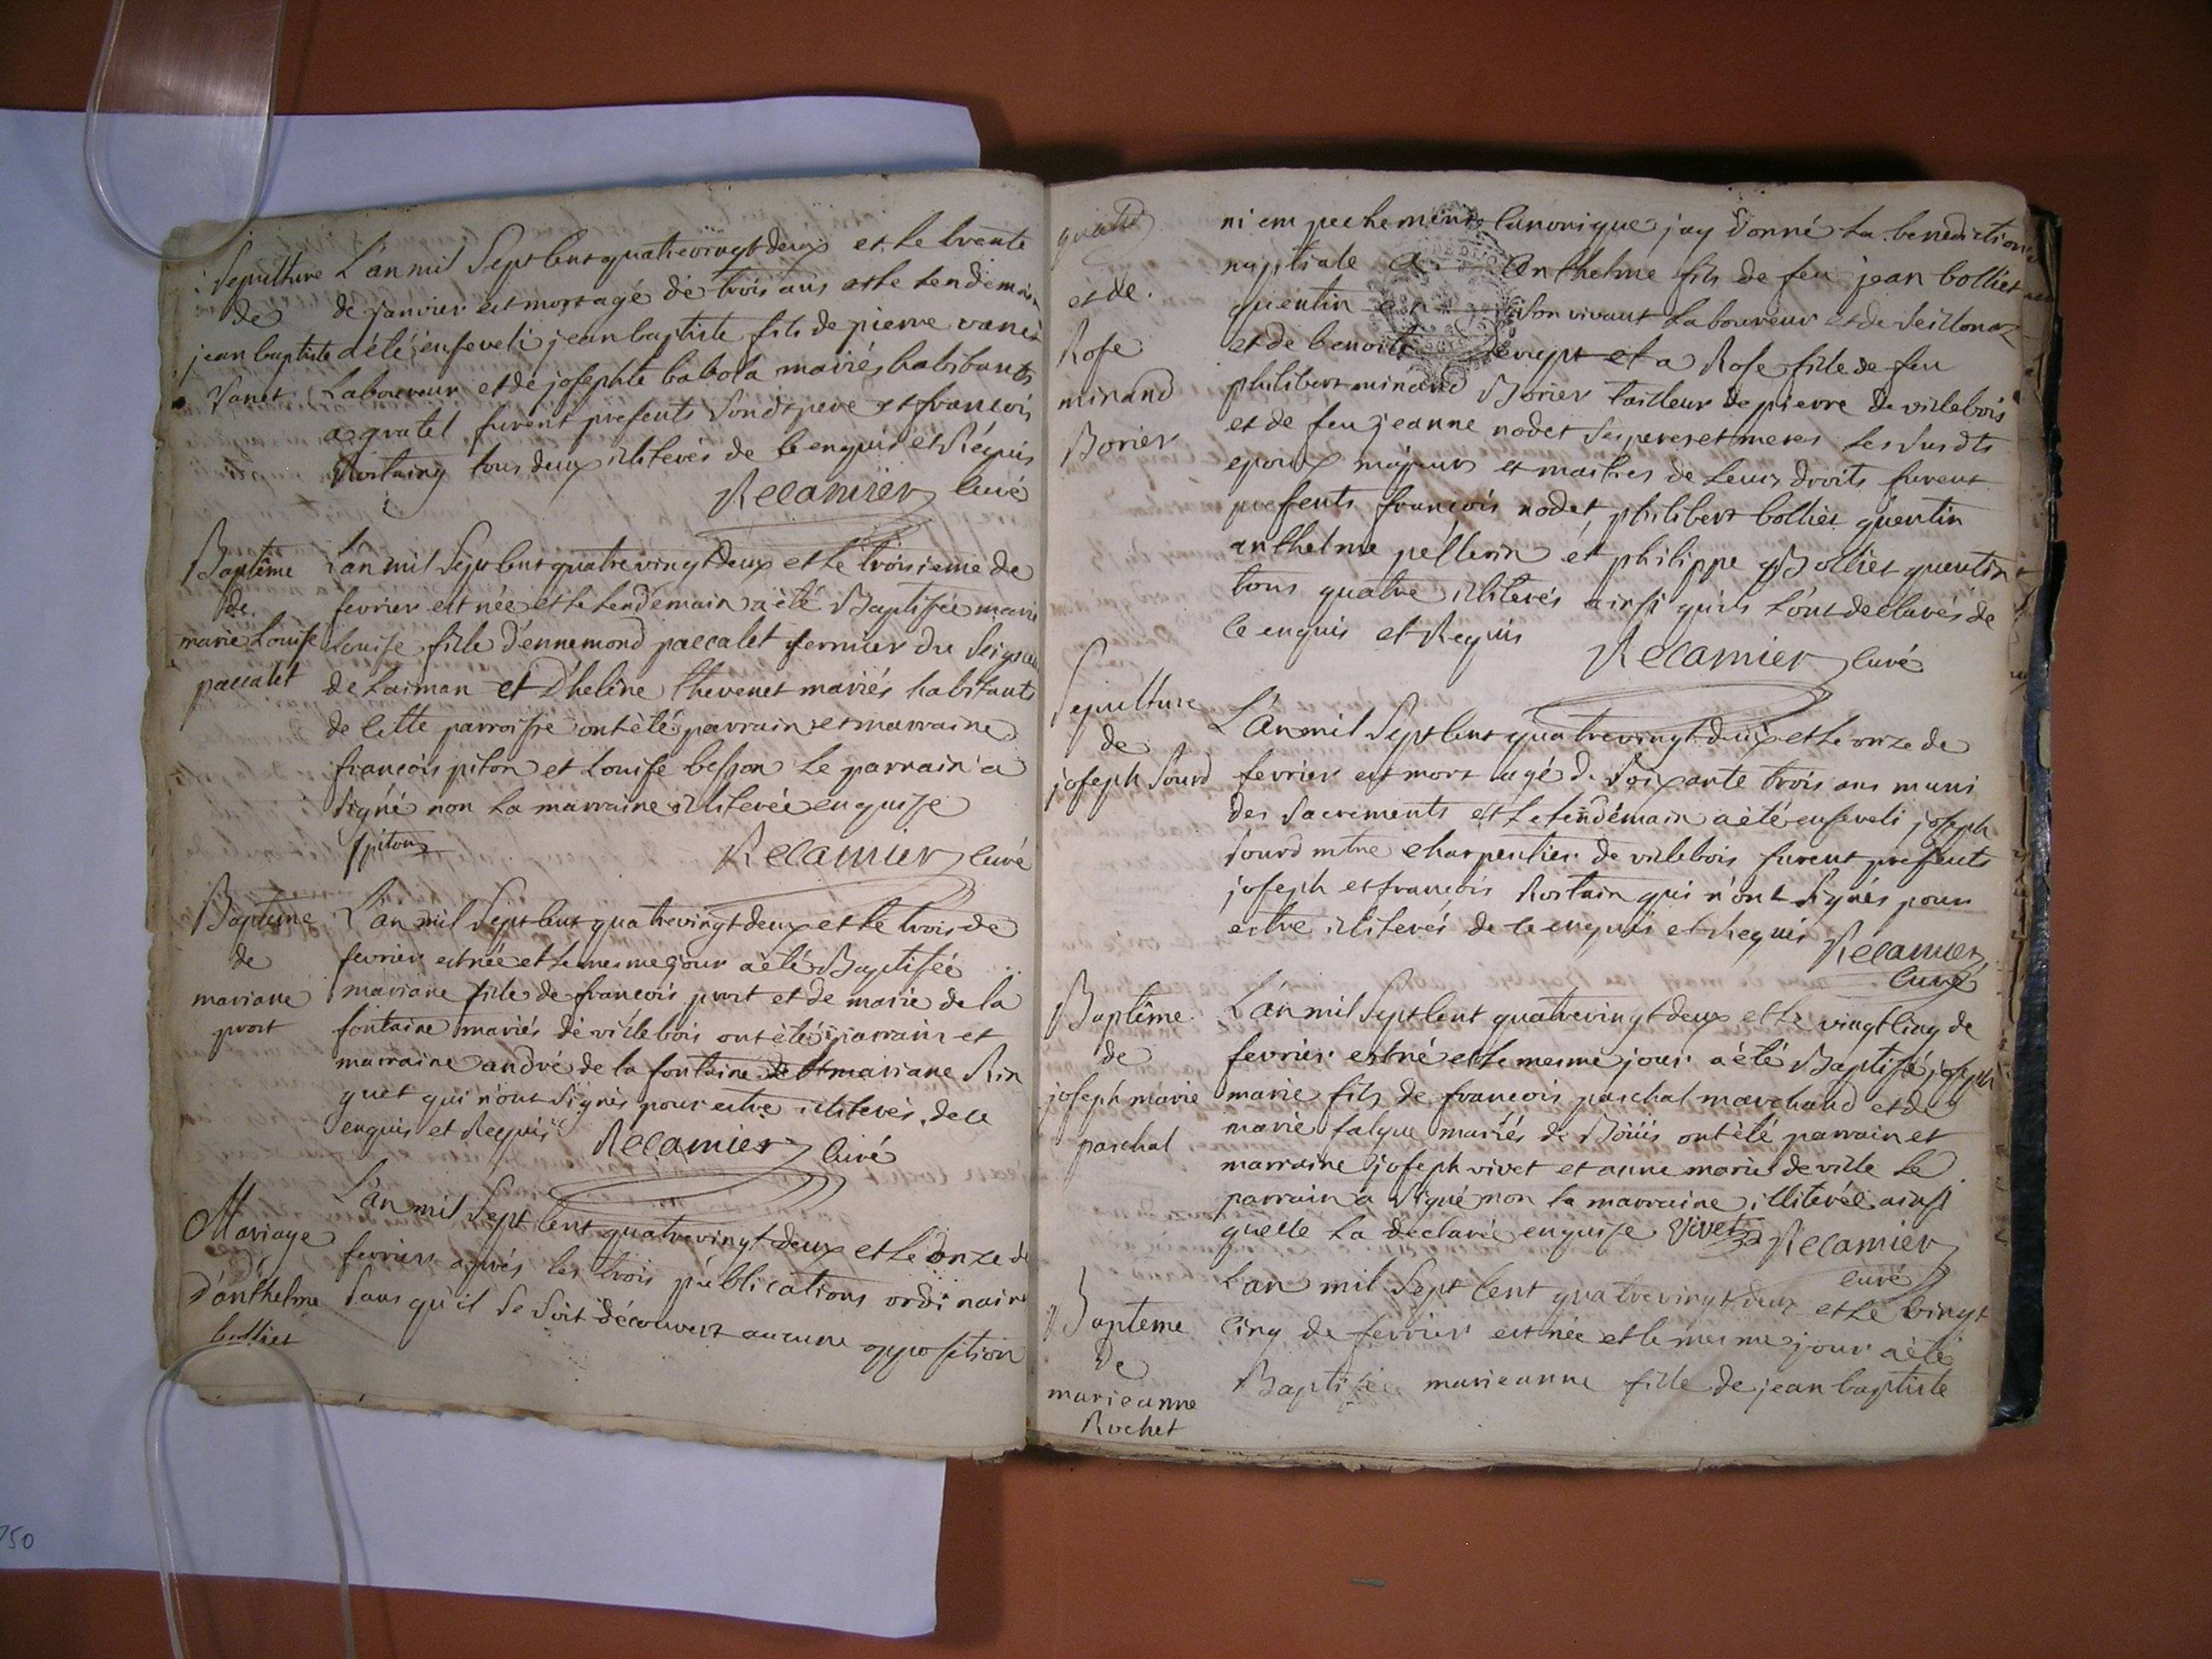 Sepulture
de
jean baptiste
vanet
L'an mil Sept Cent quatrevingt deux et le trente
de janvier est mort agé de trois ans et le Lendemain
a été enseveli jean baptiste fils de pierre vanet
Laboureur et de josephte babola mariés habitants
a gratet furent presents Sondt pere et francois
Rostaing tous deux illiterés de Ce enquis et Réquis
Récamier Curé
Baptême
de
marie Louise
paccalet
L'an mil Sept Cent quatrevingt deux et le troisieme de
fevrier est née et le Lendemain a été Baptisée marie
Louise fille d'ennemond paccalet fermier du Seigneur
de Laiman et D'heléne thevenet mariés habitants
de Cette parroisse ont été parrain et marraine
françois piton et Louise besson Le parrain a
Signé non La marraine illiterée enquise
piton
Récamier Curé
Baptême
de
mariane
prost
L'an mil Sept Cent quatrevingt deux et le trois de
fevrier est née et le mesme jour a été Baptisée
mariane fille de francois prost et de marie de la
fontaine mariés de villebois ont été parrain et
marraine andré de la fontaine et mariane Rin
guet qui n'ont Signés pour estre illiterés de Ce
enquis et Requis
Récamier Curé
Mariage
d'anthelme
bolliet
L'an mil Sept Cent quatrevingt deux et le onze de
fevrier aprés les trois publications ordinaires
Sans qu'il Se Soit découvert aucune opposition
et de
Rose
minand
Borier
ni empechement Canonique jay Donné La benediction
nuptiale a Anthelme fils de feu jean bolliet
quentin en Son vivant Laboureur et de Seillonaz
et de benoite et a Rose fille de feu
philibert minand Borier tailleur de pierre de villebois
et de feu jeanne nodet Ses peres et meres Les Susdts
epoux majeurs et maitres de Leurs droits furent
presents francois nodet, philibert bolliet quentin
anthelme pellerin et philippe Bolliet quentin
tous quatre illiterés ainsi qu'ils L'ont declarés de
Ce enquis et Requis
Récamier Curé
Sepulture
de
joseph Sourd
L'an mil Sept Cent quatrevingt deux et le onze de
fevrier est mort agé de Soixante trois ans muni
des Sacrements et le Lendemain a été enseveli joseph
Sourd mtre charpentier de villebois furent presents
joseph et francois Rostain qui n'ont Signés pour
estre illiterés de Ce enquis et Requis Récamier
Curé
Baptême
de
joseph marie
paschal
L'an mil Sept Cent quatrevingt deux et le vingt Cinq de
fevrier est né et le mesme jour a été Baptisé joseph
marie fils de francois paschal marchand et de
marie falque mariés de Boüis ont été parrain et
marraine joseph vivet et anne marie deville Le
parrain a Signé non La marraine illiterée ainsi
quelle La déclaré enquise Vivet Récamier
Curé
Baptême
de
marieanne
Rochet
L'an mil Sept Cent quatrevingt deux et le vingt
Cinq de fevrier est née et le mesme jour a été
Baptisée marieanne fille de jean baptiste